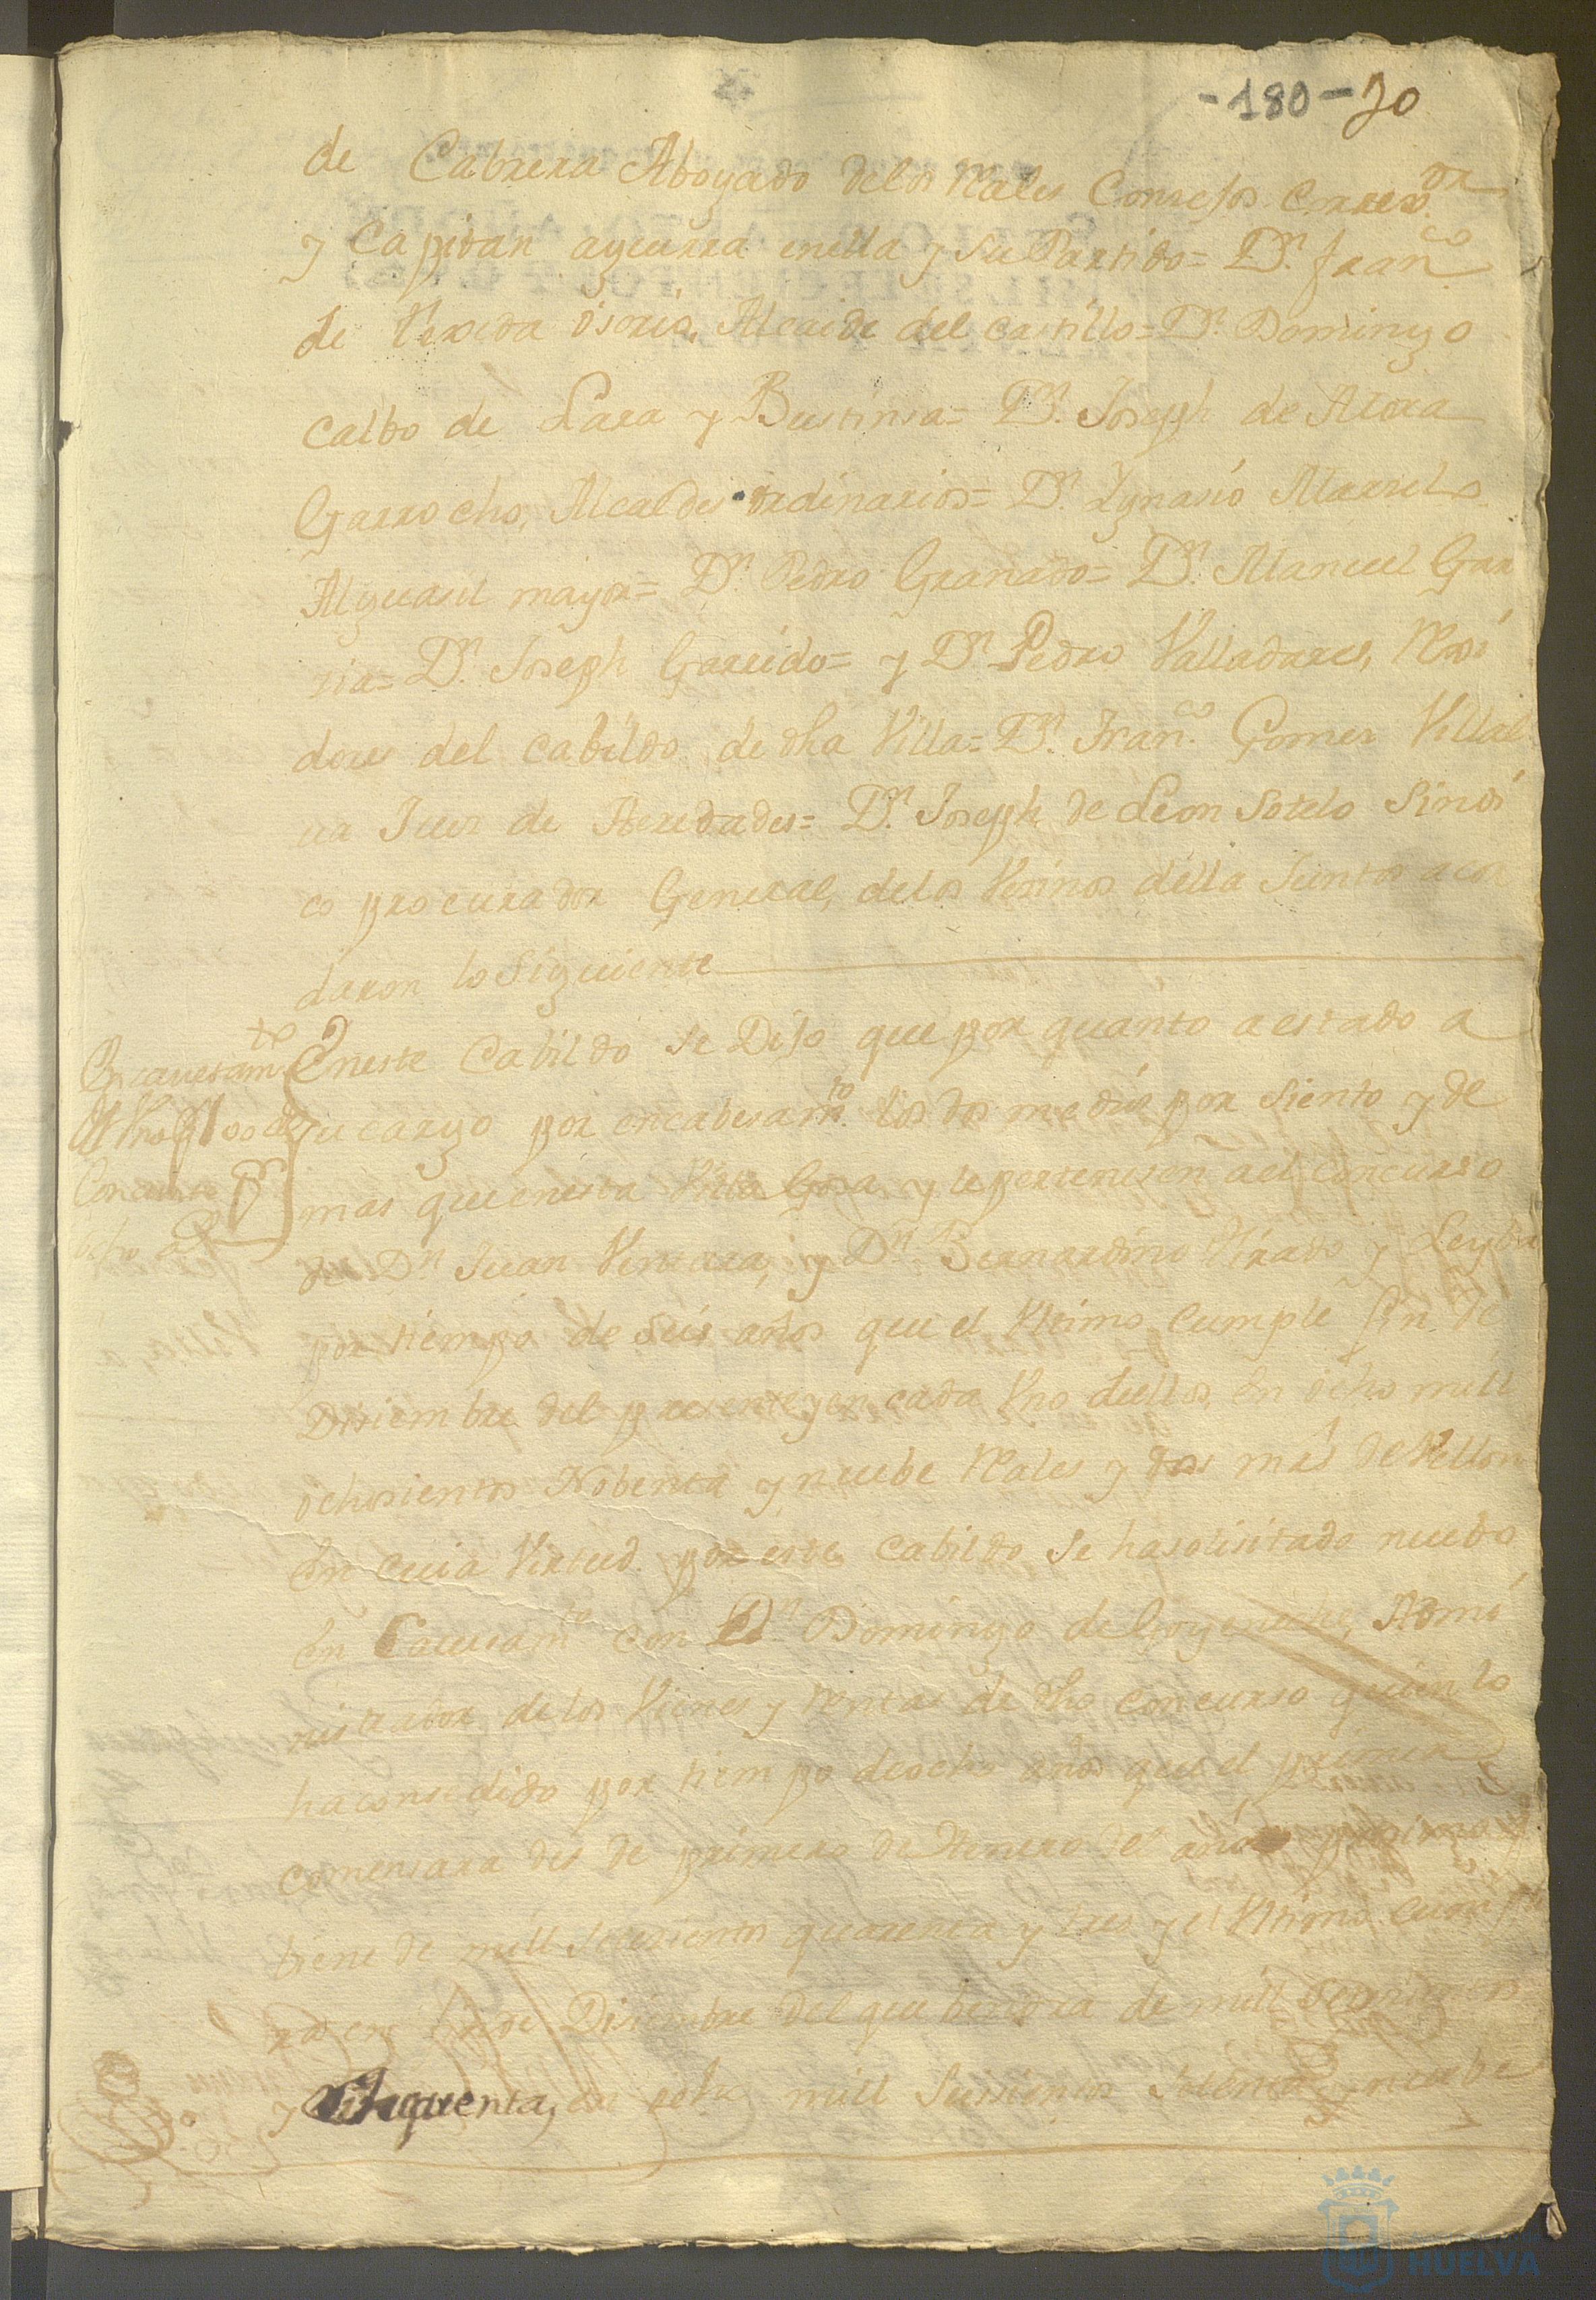 -180-70
de Cabrera Abogado delos Rales Consejos Corregor
y Capitan aguerra enella y su Partido= Dn. Franco
de texeda osorio, Alcaide del castillo= Dn. Domingo
calbo de Lara y Bustinsa= Dn. Joseph de Mora
Garrocho, Alcaldes ordinarios= Dn. Ygnasio
Alguasil mayor= Dn. Pedro Granado= Dn. Manuel Gar
sia= Dn. Joseph Garrido= y Dn. Pedro Valladares, Rexi
dores del cabildo de dha Villa= Dn. Franco. Gomes Villal
ua Jues de Heredades= Dn. Joseph de Leon Sotelo Sindi
co procurador General, delos Vesinos della Juntos acor
daron lo Siguiente
Encauesamto
Concurso
Eneste Cabildo se Dijo que por quanto a estado a
su cargo por encabesamto. los dos medios por siento y de
mas que enesta Villa Gosa y le pertenesen a el concurso
de Dn. Juan Ventura, y Dn. Bernardino Tirado y Leyba
por tiempo de seis años que el Vltimo cumple fin de
Disiembre del presente y en cada Vno dellos, en ocho mill
ochosientos Nobenta y nuebe Rales y dos mrs de Vellon
En cuia Virtud por este cabildo se hasolisitado nuebo
En Cauesamto con Dn Domingo de Goyeneche, Admi
nistrador de los Vienes y rentas de dho concurso quien lo
haconsedido por tiempo deocho años que el primero
comensara des de primero de Henero del año proximo q
biene de mill Setesientos quarenta y tres y el Vltimo cumpli
ra en fin de Disiembre del que bendra de mill Setesientos
y Sinquenta, en mill Seissientos Setenta y nuebe
HUELVA